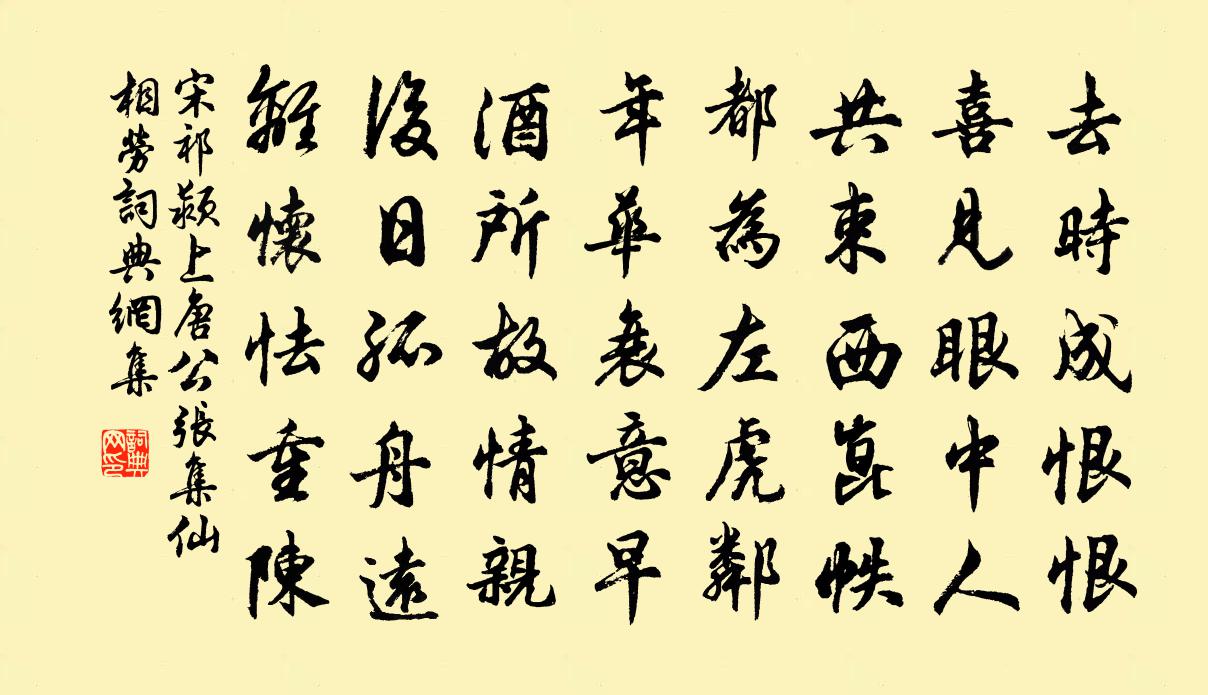 去時成恨恨
喜見眼中人
共束西崑帙
都為左虎鄰
年華衰意早
酒所故情親
後日孤舟遠
離懷怯重陳
宋祁潁上唐公張集仙
相勞詞典網集
詞典网印